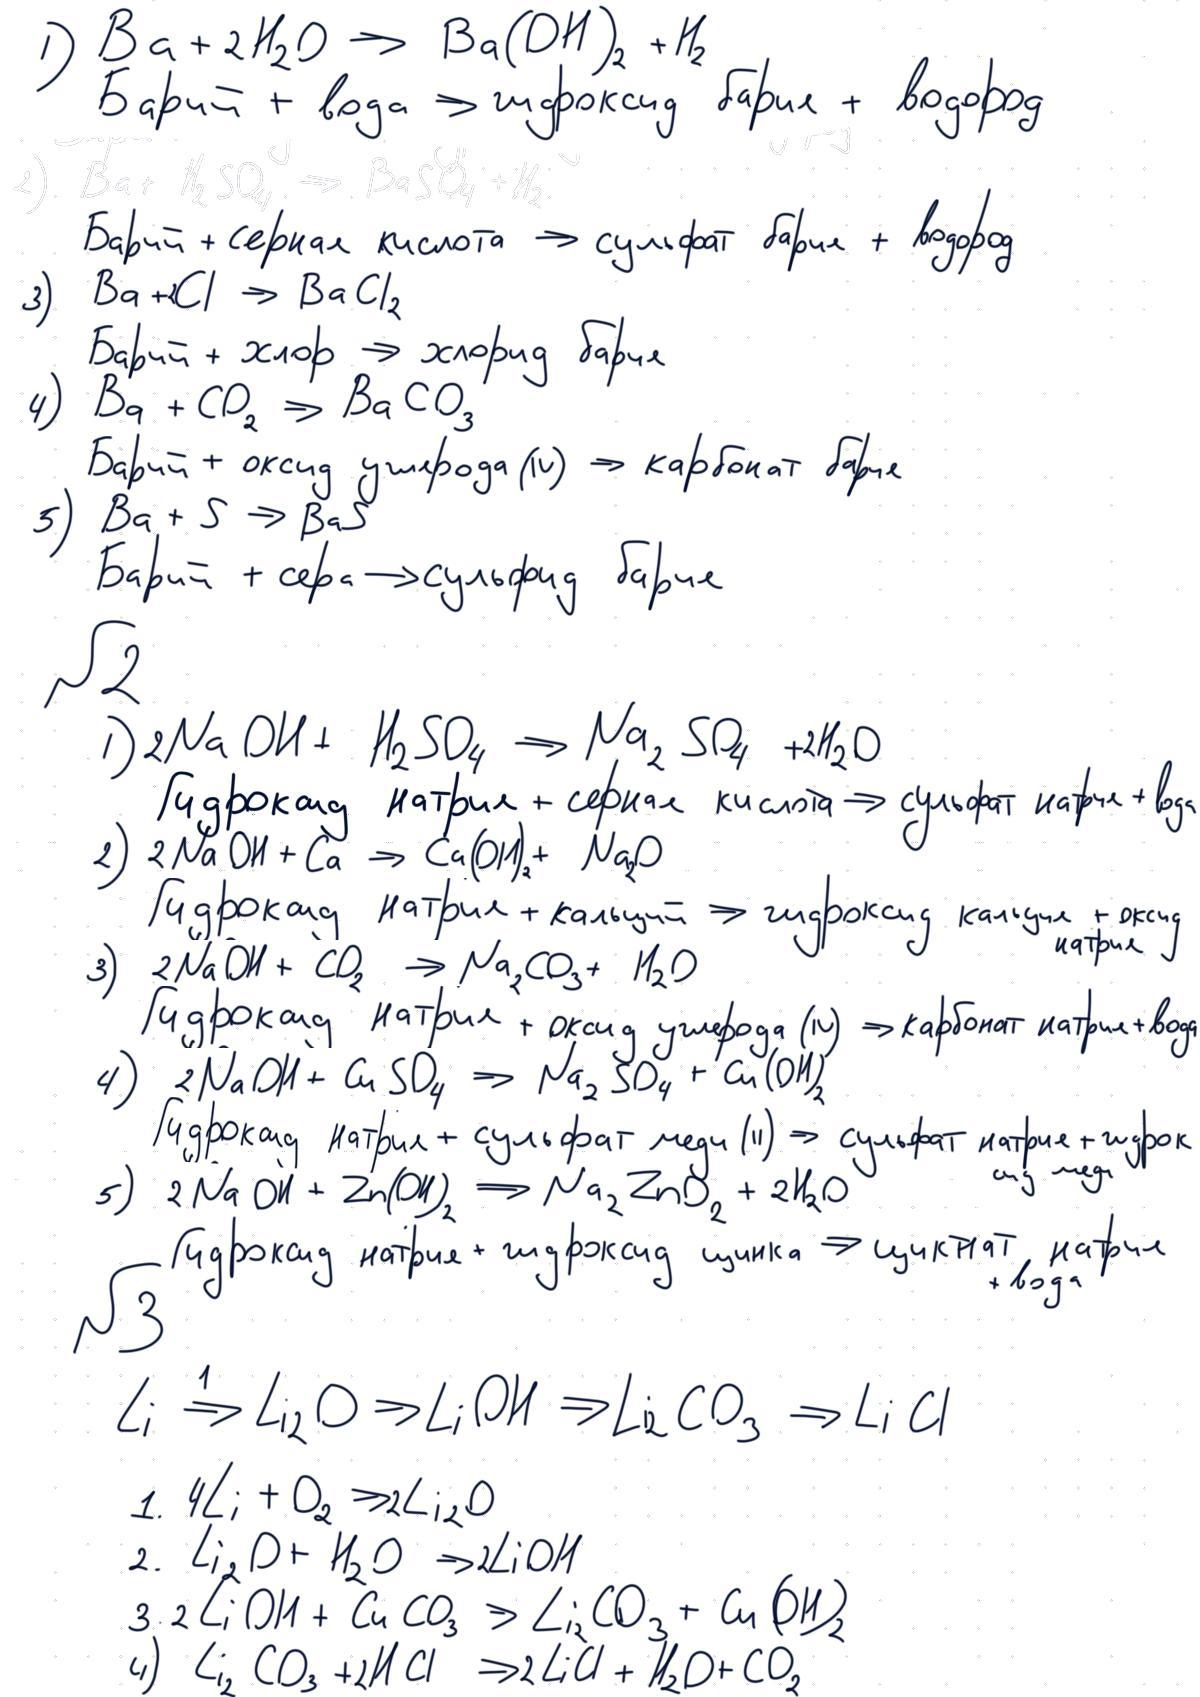 1) Ba + 2H₂O => Ba(OH)₂ + H₂
Барий + вода => гидроксид бария + водород
2). Ba + H₂SO₄ => BaSO₄ + H₂
Барий + серная кислота => сульфат бария + водород
3) Ba + 2Cl => BaCl₂
Барий + хлор => хлорид бария
4) Ba + CO₂ => BaCO₃
Барий + оксид углерода (IV) => карбонат бария
5) Ba + S => BaS
Барий + сера → сульфид бария
№2
1) 2NaOH + H₂SO₄ => Na₂SO₄ + 2H₂O
Гидроксид натрия + серная кислота => сульфат натрия + вода
2) 2NaOH + Ca => Ca(OH)₂ + Na₂O
Гидроксид натрия + кальций => гидроксид кальция + оксид
натрия
3) 2NaOH + CO₂ => Na₂CO₃ + H₂O
Гидроксид натрия + оксид углерода (IV) => карбонат натрия + вода
4) 2NaOH + CuSO₄ => Na₂SO₄ + Cu(OH)₂
Гидроксид натрия + сульфат меди (II) => сульфат натрия + гидрок
сид меди
5) 2NaOH + Zn(OH)₂ => Na₂ZnO₂ + 2H₂O
Гидроксид натрия + гидроксид цинка => цикнат натрия
+ вода
№3
Li =>¹ Li₂O => LiOH => Li₂CO₃ => LiCl
1. 4Li + O₂ => 2Li₂O
2. Li₂O + H₂O => 2LiOH
3. 2LiOH + CuCO₃ => Li₂CO₃ + Cu(OH)₂
4) Li₂CO₃ + 2HCl => 2LiCl + H₂O + CO₂